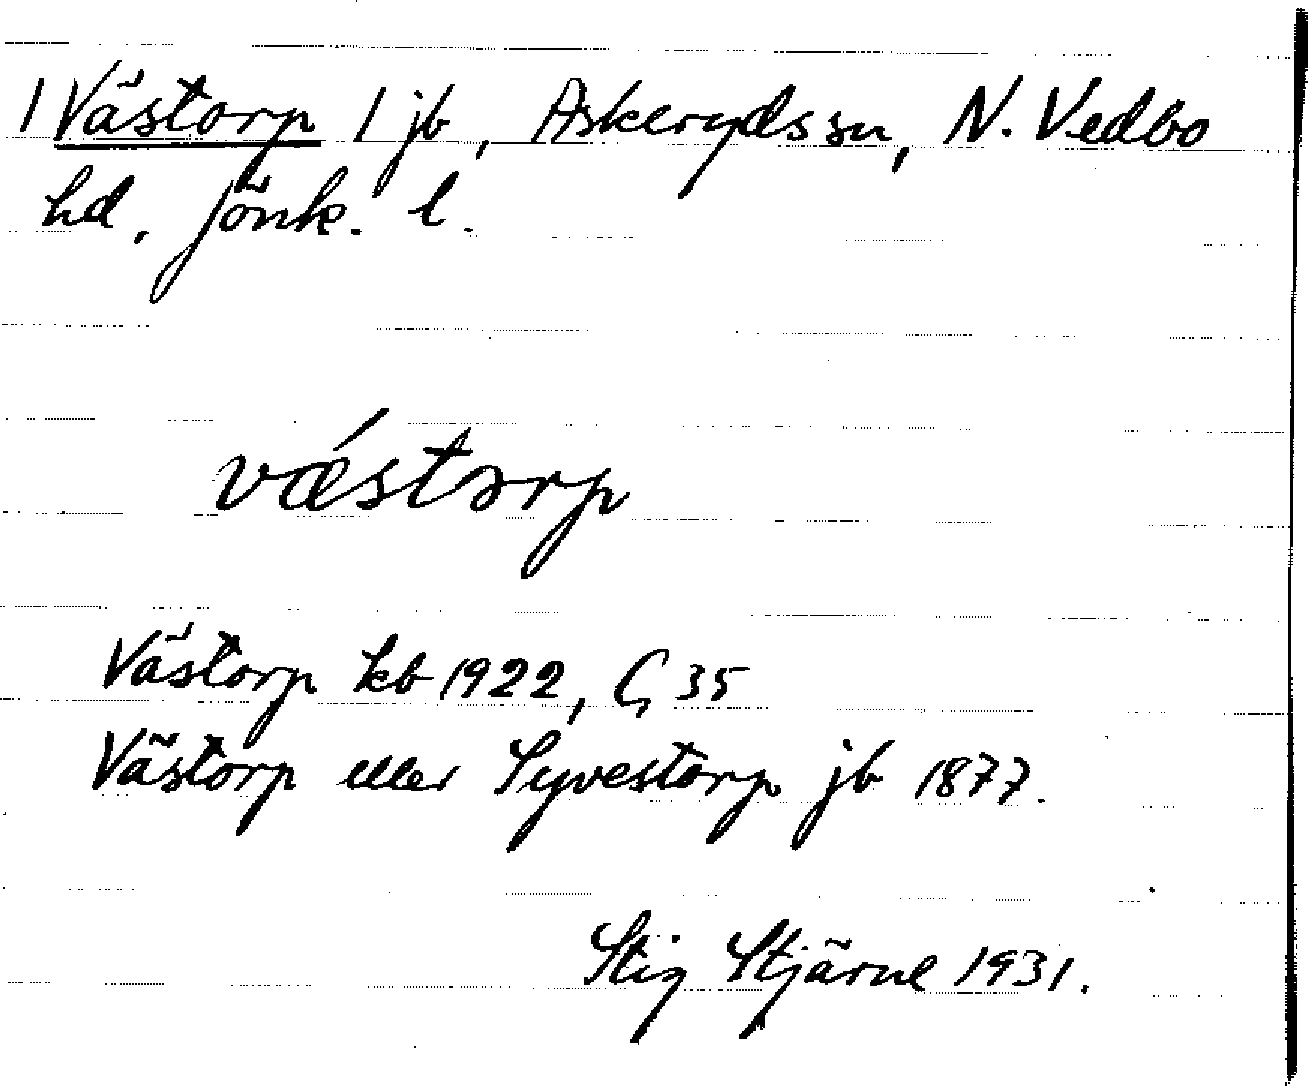 1 Västorp 1 jb, Askerydssn, N. Vedbo
hd. Jönk. l.
vǽstorp
Västorp kb 1922, G 35
Västorp eller Syvestorp jb 1877.
Stig Stjärne 1931.